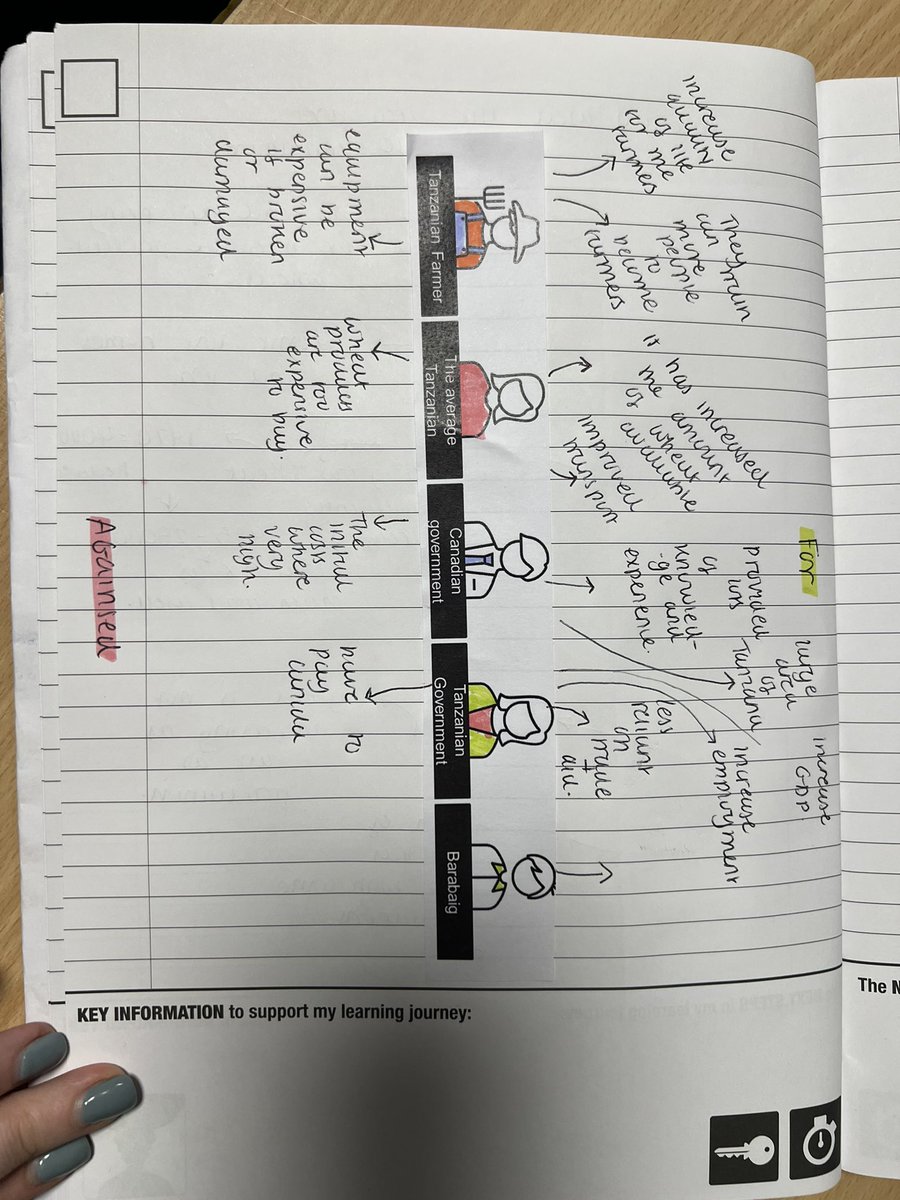 For
increase
quality
of life
for the
farmers
They
can train
more
people
to
become
farmers
it has increased
the amount
of wheat
available
improved
transport
provided
lots
of
knowled-
ge and
experience.
large
area
of
Tanzania
increase
GDP
increase
employment
less
reliant
on
trade
+
aid.
Tanzanian Farmer
The average
Tanzanian
Canadian
government
Tanzanian
Government
Barabaig
equipment
can be
expensive
if broken
or
damaged
wheat
products
are too
expensive
to buy.
The
initial
costs
where
very
high.
have to
pay
Canada
Againsed
KEY INFORMATION to support my learning journey:
The N